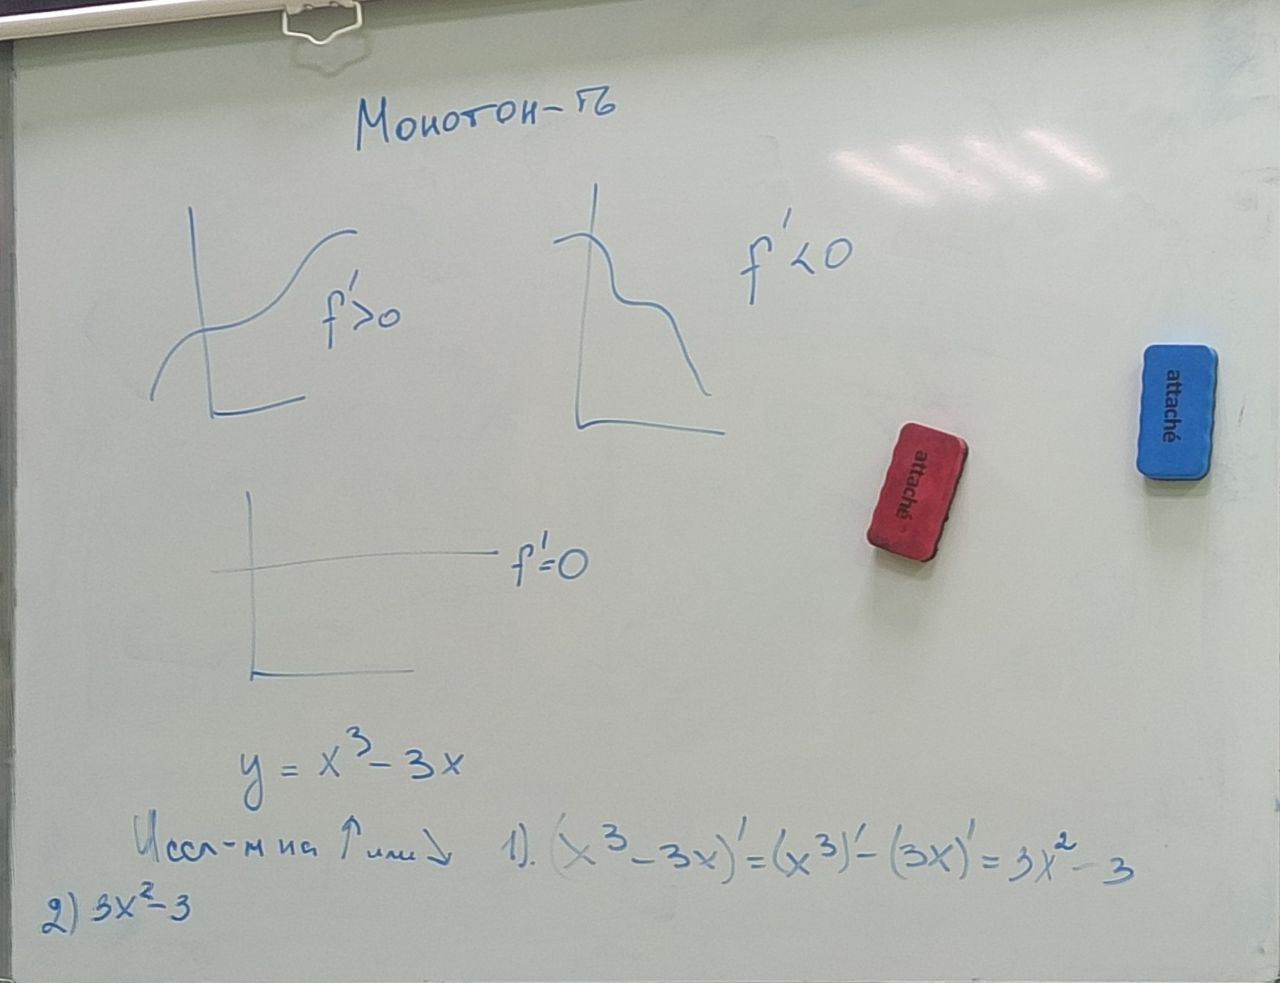 Монотон-ть
f'>0
f'<0
attaché
attaché
f'=0
y = x³ - 3x
Иссл-м на ↑ или ↘ 1). (x³ - 3x)' = (x³)' - (3x)' = 3x² - 3
2) 3x² - 3